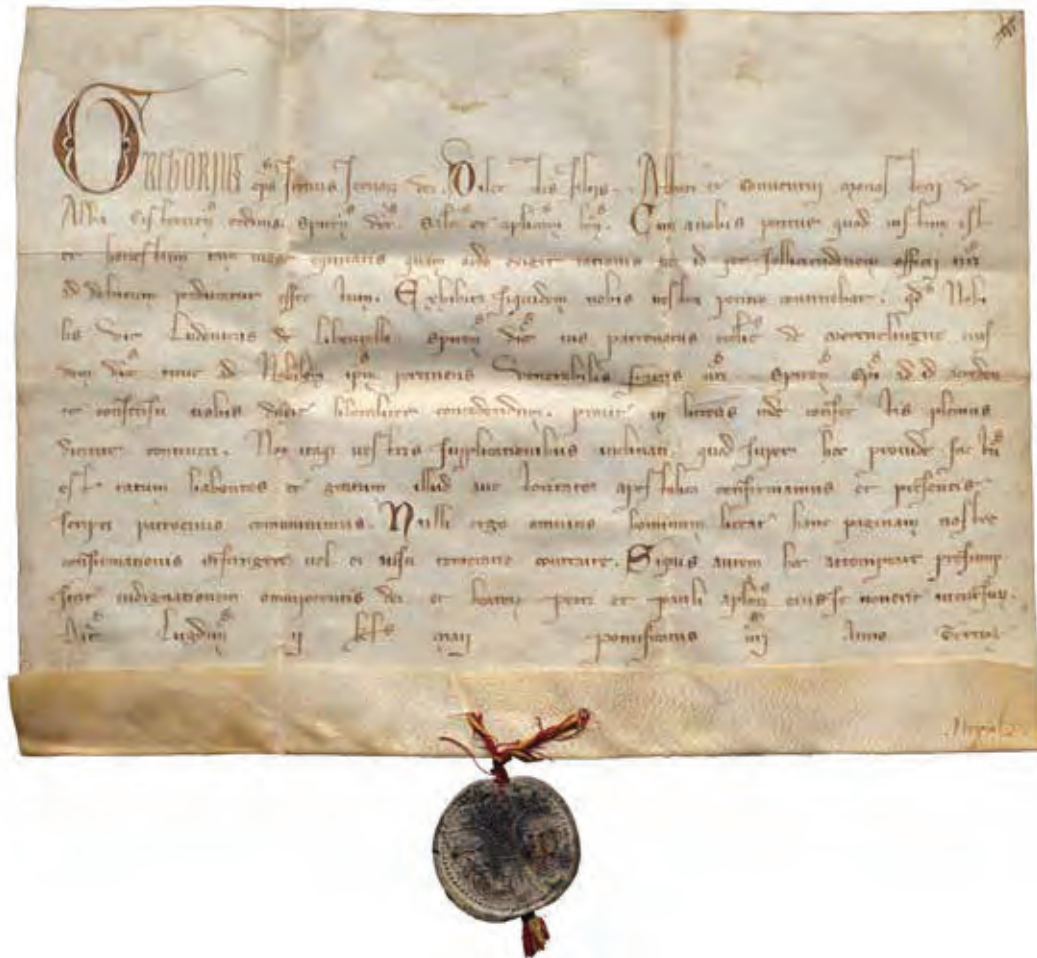 GREGORIUS eps seruus seruor dei. Dilectis filiis .. Abbati et Conuentui Monasterii de
Alba Cistercien ordinis Spiren dioc. Salt et aplicam ben. Cum a nobis petitur quod iustum est
et honestum tam uigor equitatis quam ordo exigit rationis ut id per sollicitudinem officii nri
ad debitum perducatur effectum. Exhibita siquidem nobis uestra petitio continebat. qd Nobi
lis Vir Ludouicus de spiren dioc ius patronatus eccle de eius
dem dioc tunc ad Nobilem ipm pertinens Venerabilis fratris nri .. Spiren epi ad id accedente
et consensu uobis duxit concedendum. prout in litteris inde confectis plenius
dicitur contineri. Nos itaqz uestris supplicationibus inclinati quod super hoc prouide factu
est ratum habentes et gratum illud auctoritate apostolica confirmamus et presentis
scripti patrocinio communimus. Nulli ergo omnino hominum liceat hanc paginam nostre
confirmationis infringere uel ei ausu temerario contraire. Siquis autem hoc attemptare presump
serit indignationem omnipotentis dei et beator Petri et Pauli aplor eius se nouerit incursur.
Dat Lugdun ij kls maij pontificatus nri Anno Tertio